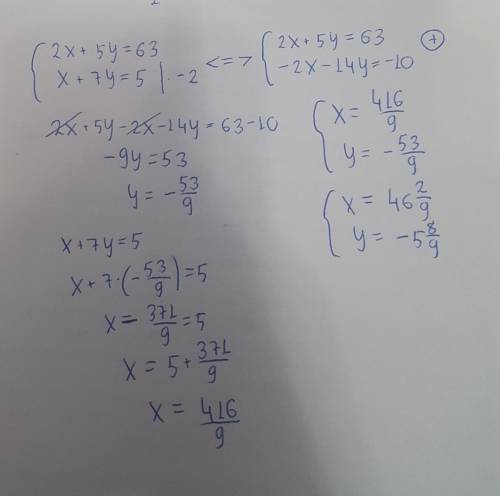 {2x + 5y = 63
x + 7y = 5 | · -2
<=>
{2x + 5y = 63 (+)
-2x - 14y = -10
2x + 5y - 2x - 14y = 63 - 10
-9y = 53
y = - 53/9
x + 7y = 5
x + 7 · (- 53/9) = 5
x = 371/9 = 5
x = 5 + 371/9
x = 416/9
{x = 416/9
y = - 53/9
{x = 46 2/9
y = -5 8/9